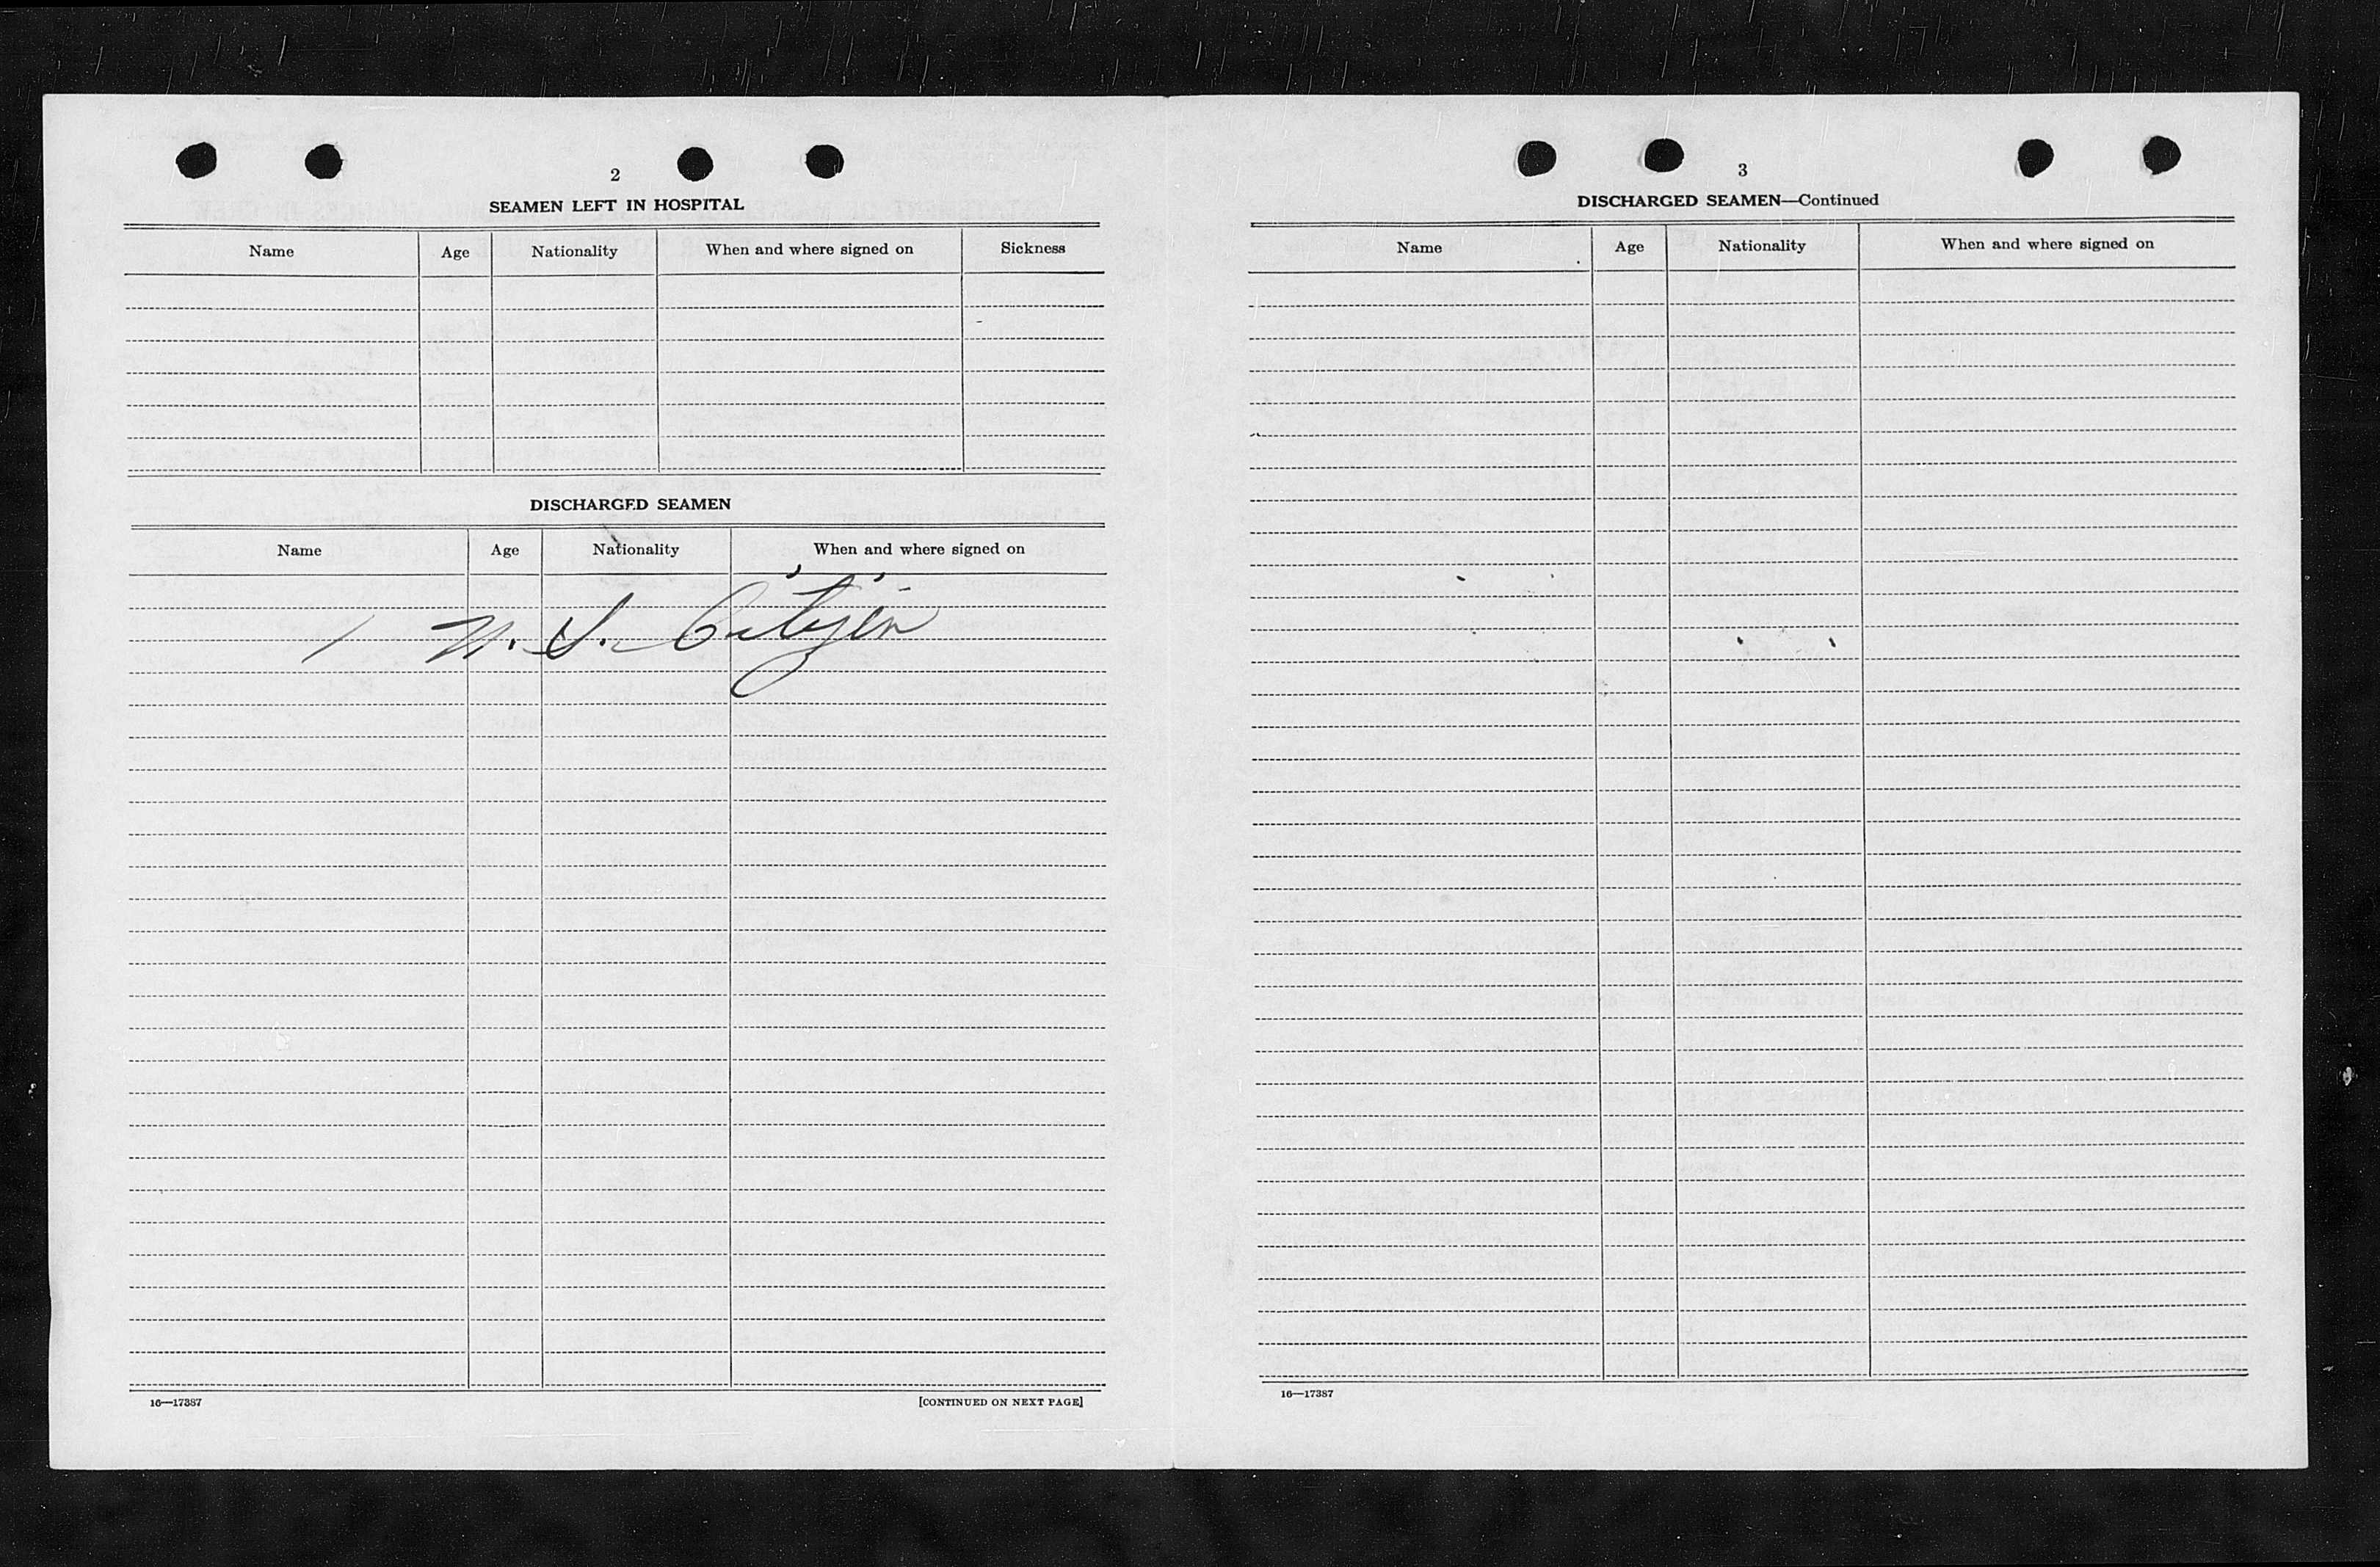 2
SEAMEN LEFT IN HOSPITAL
Name Age Nationality When and where signed on Sickness
DISCHARGED SEAMEN
Name Age Nationality When and where signed on
1 U. S. Citizen
16—17387 [CONTINUED ON NEXT PAGE]
3
DISCHARGED SEAMEN—Continued
Name Age Nationality When and where signed on
16—17387